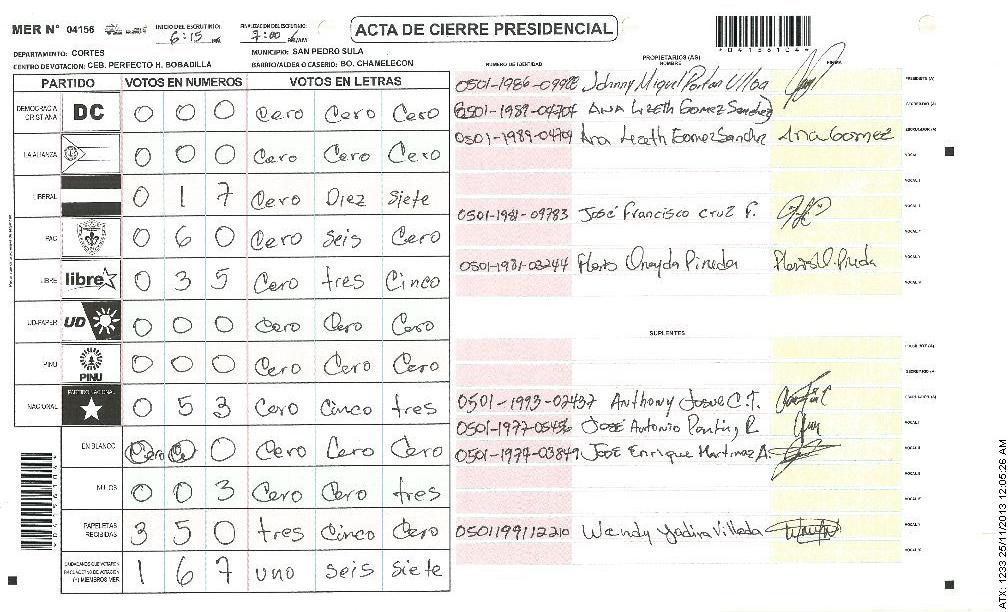 MER Nº 04156 INICIO DEL ESCRUTINIO: 6:15 PM FINALIZACION DEL ESCRUTINIO: 7:00
ACTA DE CIERRE PRESIDENCIAL
DEPARTAMENTO: CORTES MUNICIPIO: SAN PEDRO SULA
CENTRO DE VOTACION: CEB. PERFECTO H. BOBADILLA BARRIO/ALDEA O CASERIO: BO. CHAMELECON
PARTIDO VOTOS EN NUMEROS VOTOS EN LETRAS
DEMOCRACIA CRISTIANA DC 0 0 0 Cero Cero Cero
LA ALIANZA 0 0 0 Cero Cero Cero
LIBERAL 0 1 7 Cero Diez Siete
PAC 0 6 0 Cero Seis Cero
LIBRE libre 0 3 5 Cero tres Cinco
UD-FAPER UD 0 0 0 Cero Cero Cero
PINU PINU 0 0 0 Cero Cero Cero
NACIONAL PARTIDO NACIONAL 0 5 3 Cero Cinco tres
EN BLANCO 0 Cero Cero Cero
NULOS 0 0 3 Cero Cero tres
PAPELETAS RECIBIDAS 3 5 0 tres Cinco Cero
CIUDADANOS QUE VOTARON
(+) MIEMBROS MER 1 6 7 uno Seis Siete
NUMERO DE IDENTIDAD PROPIETARIOS (AS) NOMBRE FIRMA
Johnny Miguel PRESIDENTE (A)
0501-1989-04704 ANA LIZETH GOMEZ Sanchez SECRETARIO (A)
0501-1989-04704 Ana Lizeth Gomez Sanchez Ana Gomez ESCRUTADOR (A)
VOCAL I
0501-1981-09783 José Francisco Cruz F.
0501-1981-03244 Onayda Pineda
SUPLENTES
0501-1993-02437 Anthony Josue C.T.
José Antonio
0501-1974-03849 José Enrique Martinez A.
0501199112210 Wendy Yadira Villeda
ATX: 1233 25/11/2013 12:05:26 AM